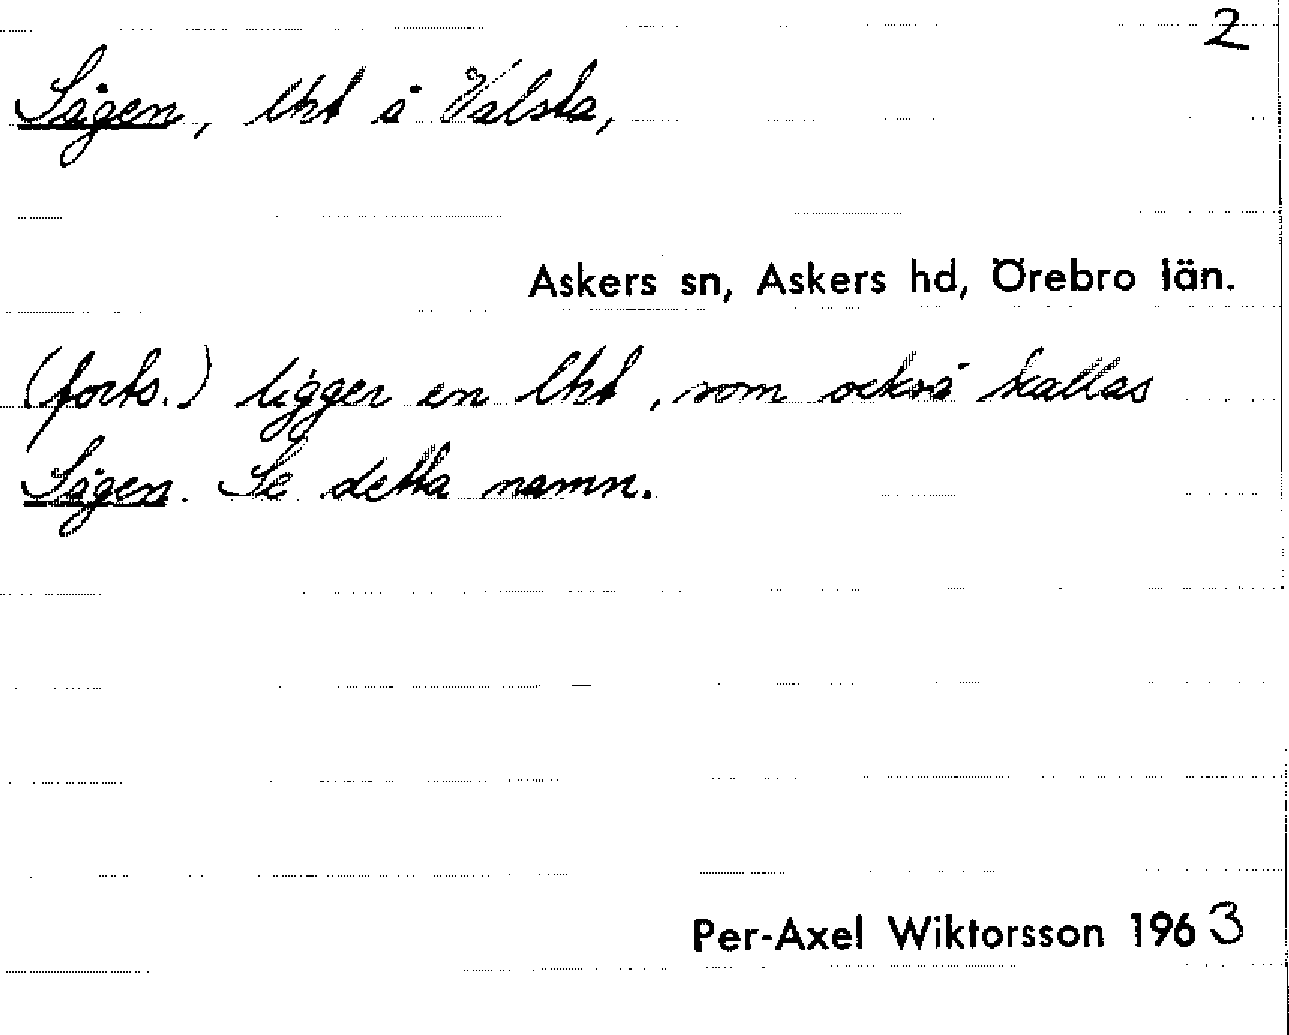 2
Sågen, lht å Valsta,
Askers sn, Askers hd, Örebro län.
(forts.) ligger en lht, som också kallas
Sågen. Se detta namn.
Per-Axel Wiktorsson 1963